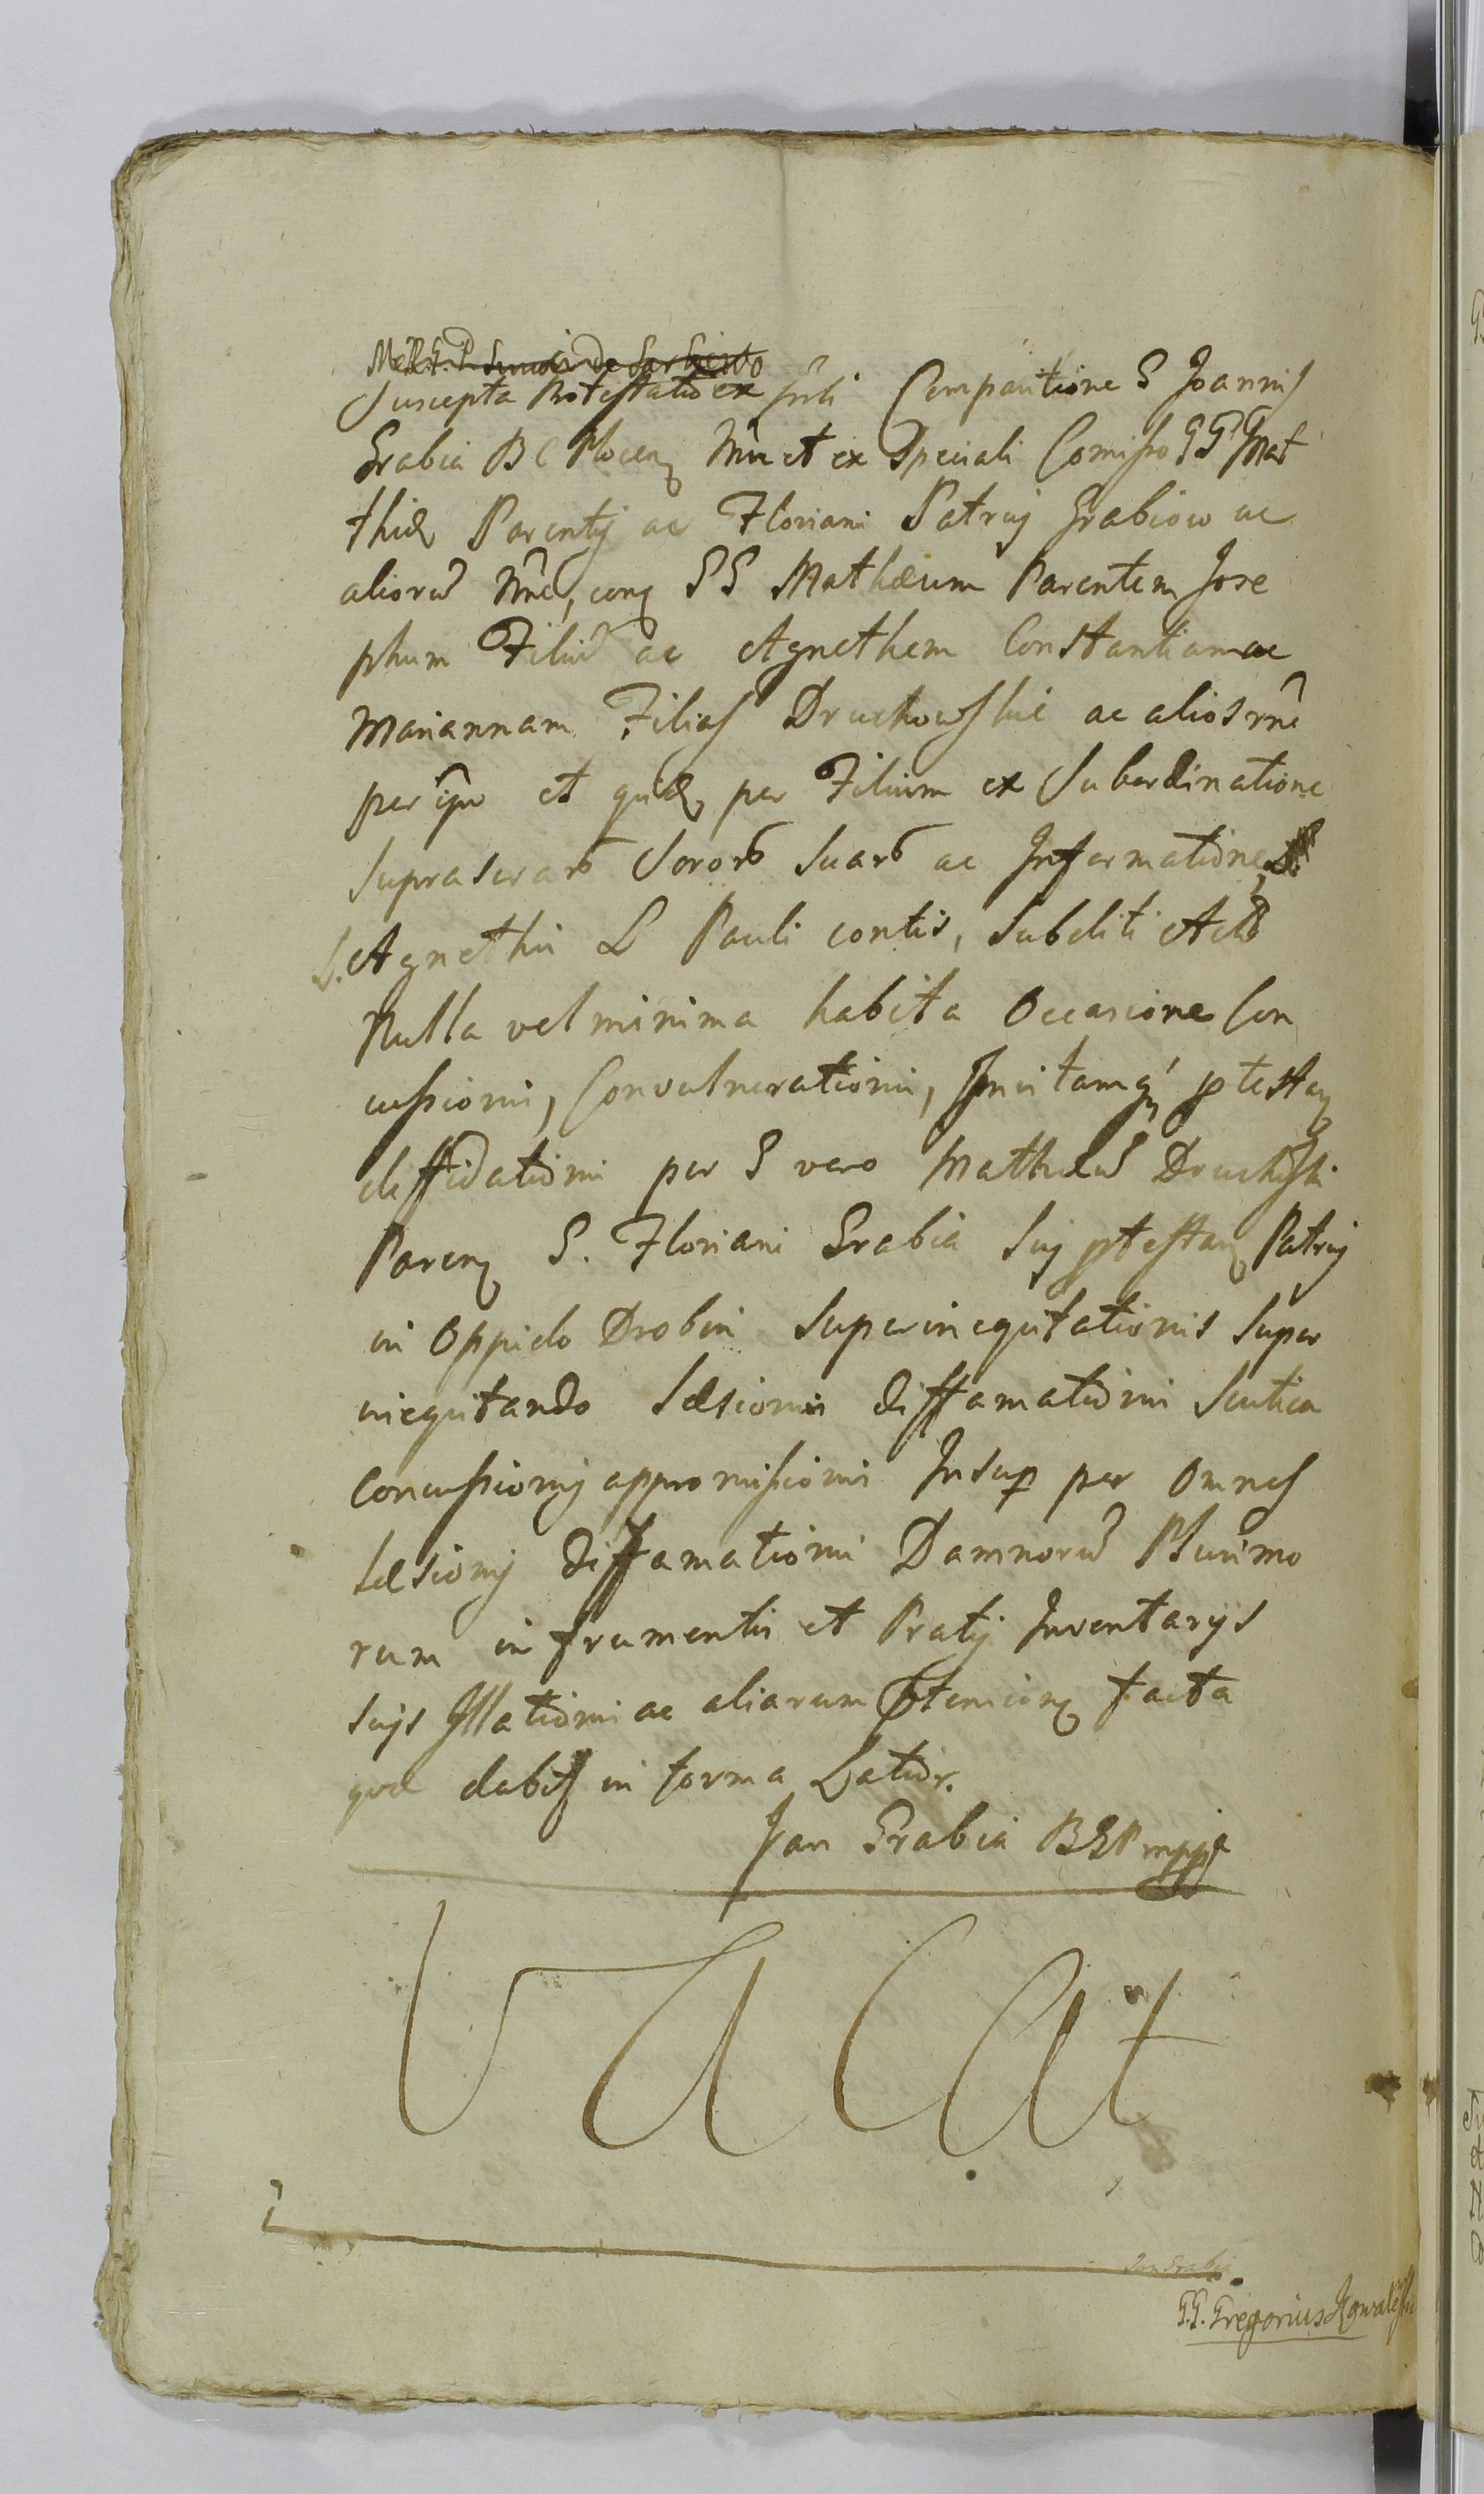 Suscepta Protestatio ex prsti Comparitione G Joannis
Grabia B C Plocen Nmn et ex Speciali Comisso GG Mat
thiæ Parentis ac Floriani Patruj Grabiow ac
aliorũ Nne, conq GG Mathæum Parentem Jose
phum Filiũ ac Agnethem Constantiam ac
Mariannam Filias Druchowskie ac alios rne
per et quid, per Filium ex Subordinatione
suprascrarũ Sororũ suarũ ac Informatione,
S. Agnethis L Pauli contis, subditi Actũ
Nulla vel minima habita Occasione Con
cussionis, Convulnerationis, ptestan
deffidationis per G vero Mathæũ Druchski
Paren G. Floriani Grabia sui ptestan Patruj
in Oppido Drobin Superinequitationis super
inequitando Læsionis diffamationis Scutica
Concussionis appromissionis Insup per Omnes
Læsionis Diffamationis Damnorũ Plurimo
rum in frumentis et Pratis Inventarijs
suijs Illationis ac aliarum facta
quæ dabit in forma Latior.
Jan Grabia BGP mppa
Vacat
Jan Grabia
GG. Gregorius Kowalewski